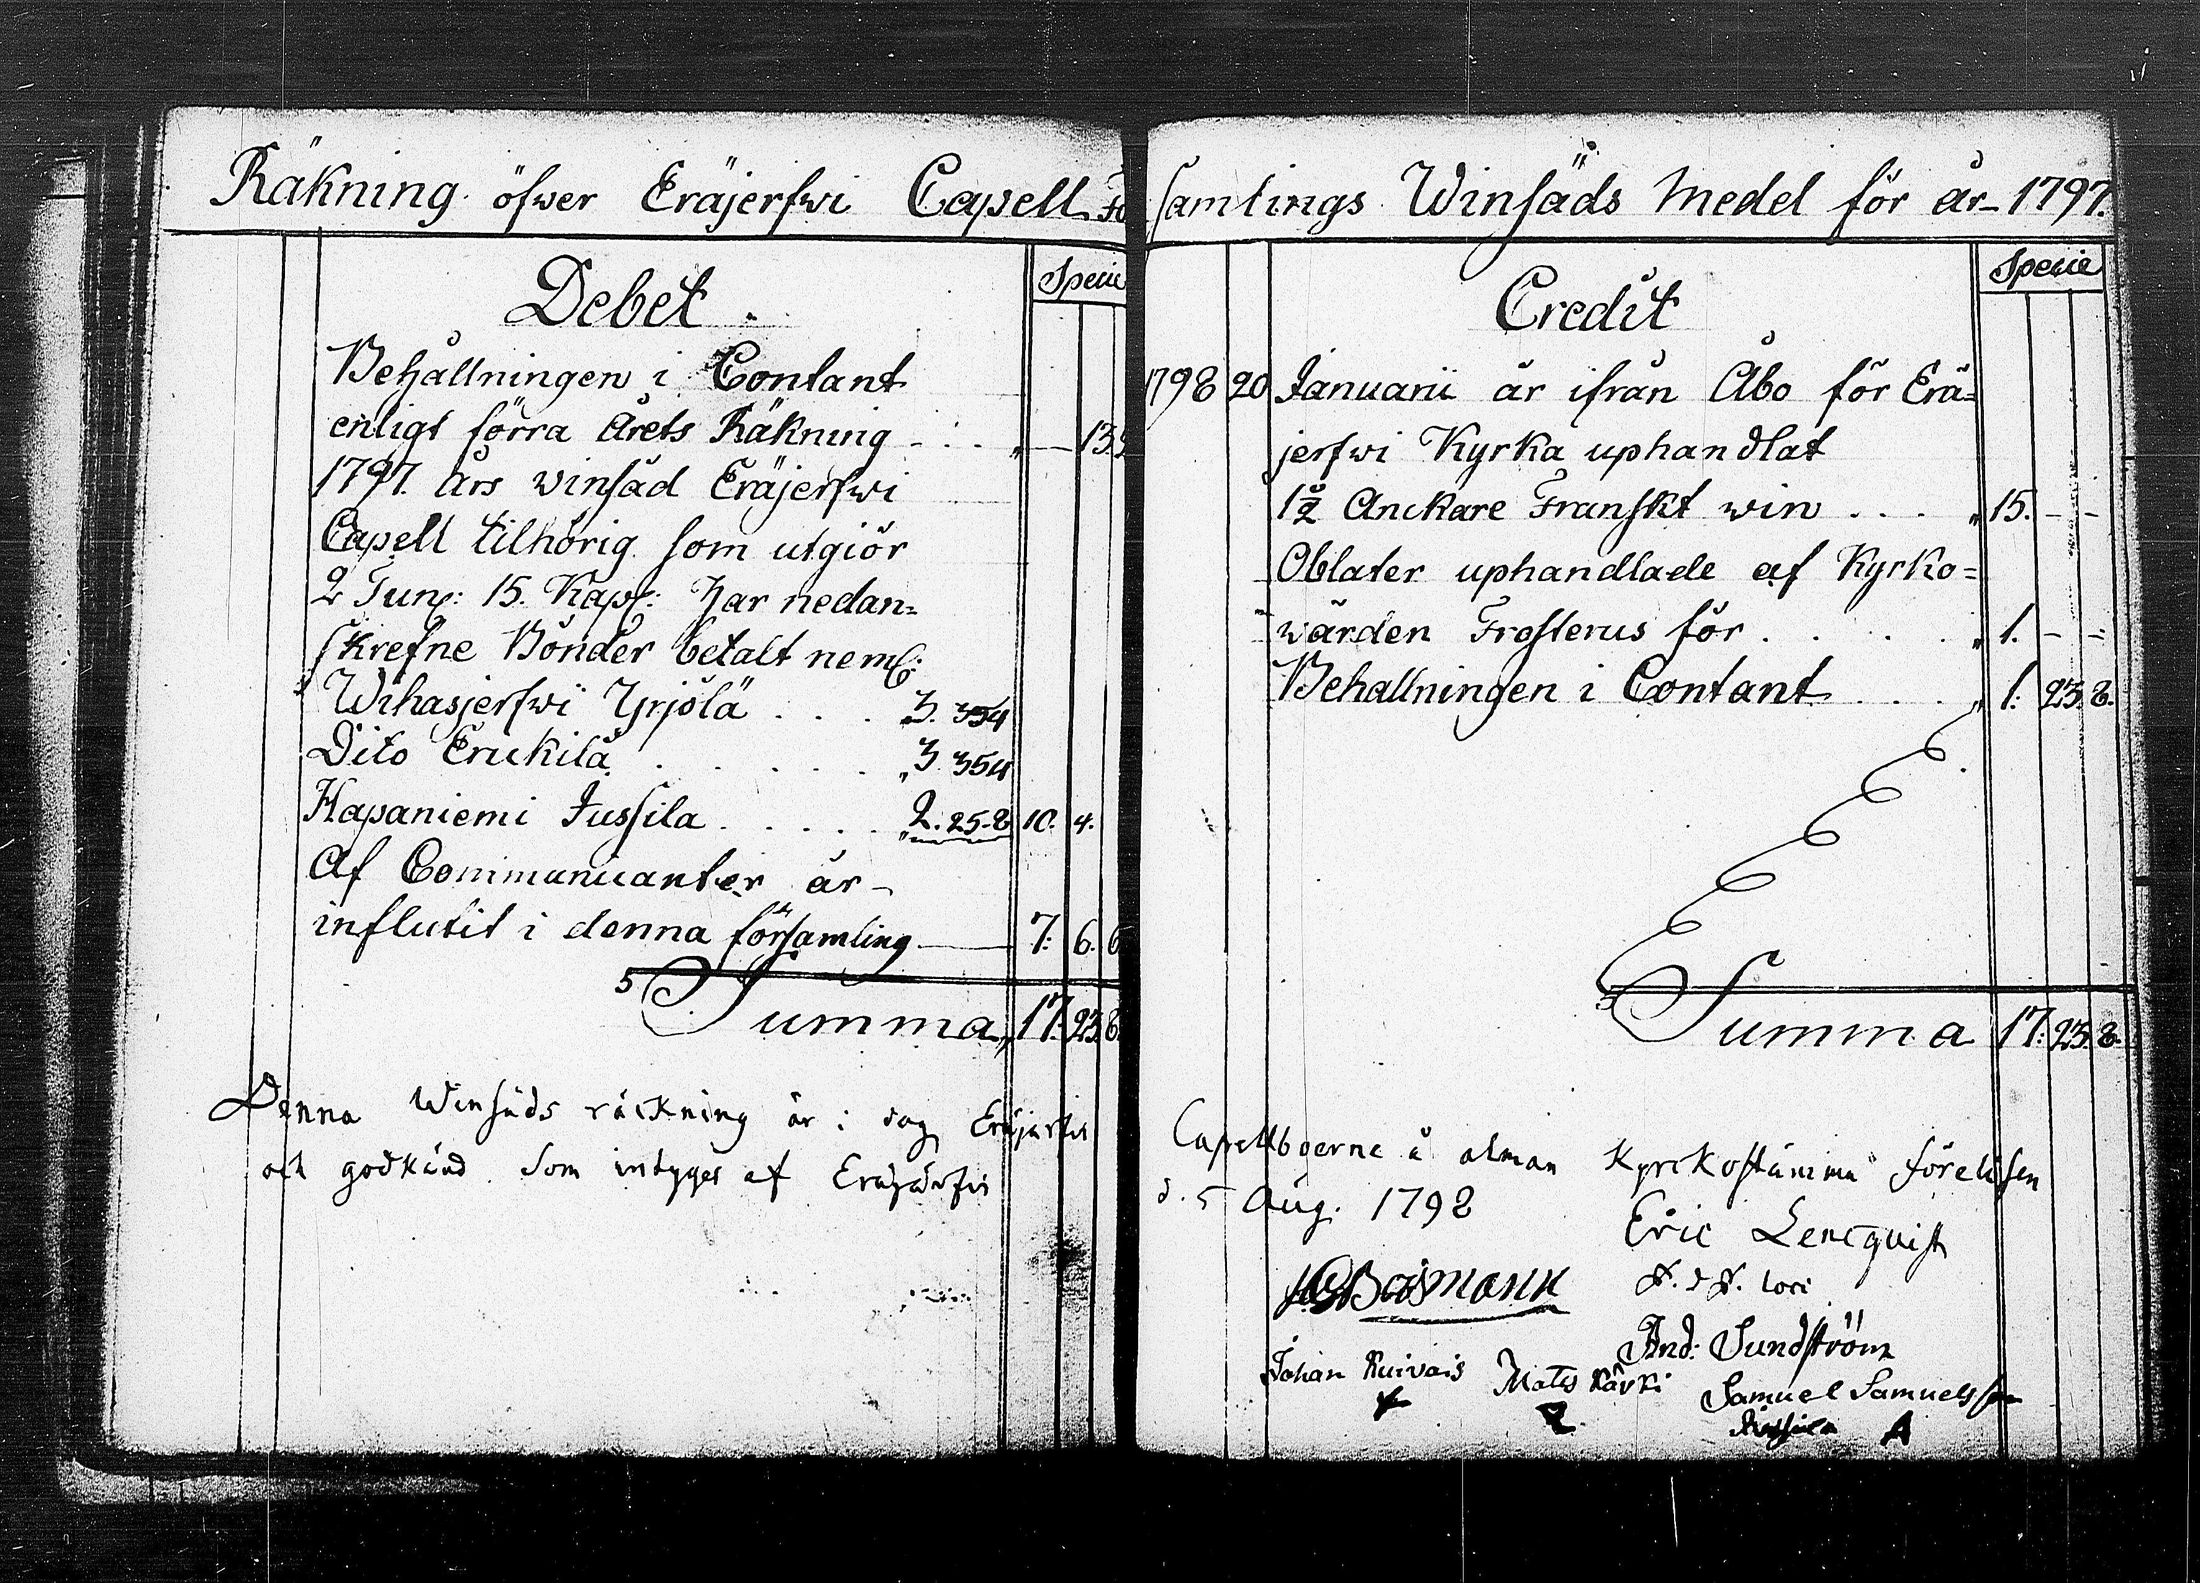 Räkning öfwer Eräjerfwi Capell Församlings Winsäds Medel för år 1797.
Debet.
Specie
Behållningen i Contant
enligt förra Årets Räkning - . . . „ — 13.
1797. års winsäd Eräjerfwi
Capell tilhörig som utgiör
2 Tun: 15. Kap: har nedan=
skrefne Bönder betalt neml:
Wihasjerfwi Yrjölä . . . 3. 354
Dito Erickilä . . . . . . „ 3. 354
Hapaniemi Jussila . . . . . „ 2. 25. 8 10. 4.
Af Communicanter är
influtit i denna församling — 7. 6. 6
Summa „ 17. 23. 8.
Credit
Specie
1798 20 Januarii är ifrån Åbo för Erä=
jerfwi Kyrka uphandlat
1½ Anckare Franskt win . . . „ 15. - -
Oblater uphandlade af Kyrko=
wärden Frosterus för . . . . „ 1. - =
Behallningen i Contant . . . „ 1. 23. 8.
Summa 17. 23. 8.
Denna Winsäds räckning är i dag Eräjärfvi Capellboerne å alman Kyrckostämma föreläsen
och godkänd som intyges af Eräjärfvi d. 5 Aug. 1798
Eric Lencqvist
loci
Boismann
And: Sundström
Johan Ruivais Mats Kärki Samuel Samuelsson
Jussila A